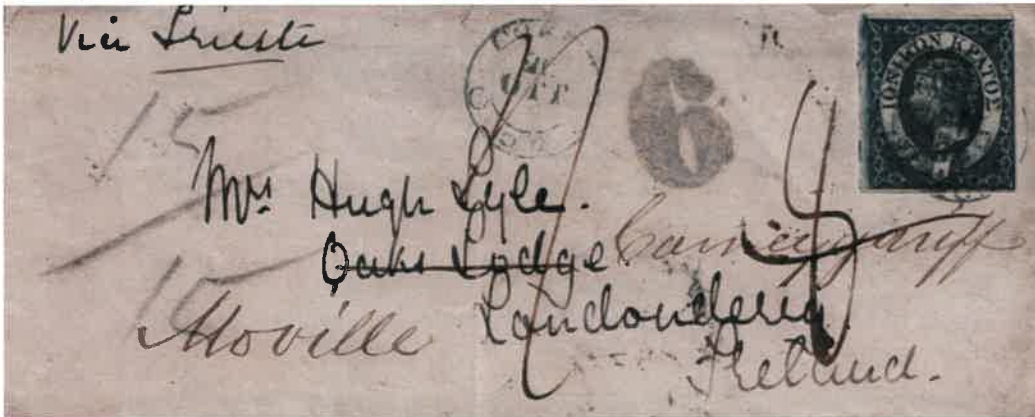 Via Trieste
OTT
6
ΙΟΝΙΚΟΝ ΚΡΑΤΟΣ
15
Mrs Hugh Lyle.
Oaks Lodge
15
Moville Londonderry
Ireland.